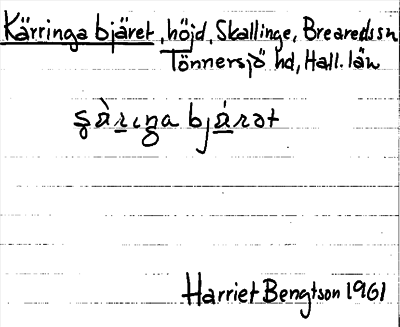 Kärringa bjäret, höjd, Skallinge, Brearedssn
Tönnersjö hd, Hall. län
şàrıŋa bjárət
Harriet Bengtson 1961